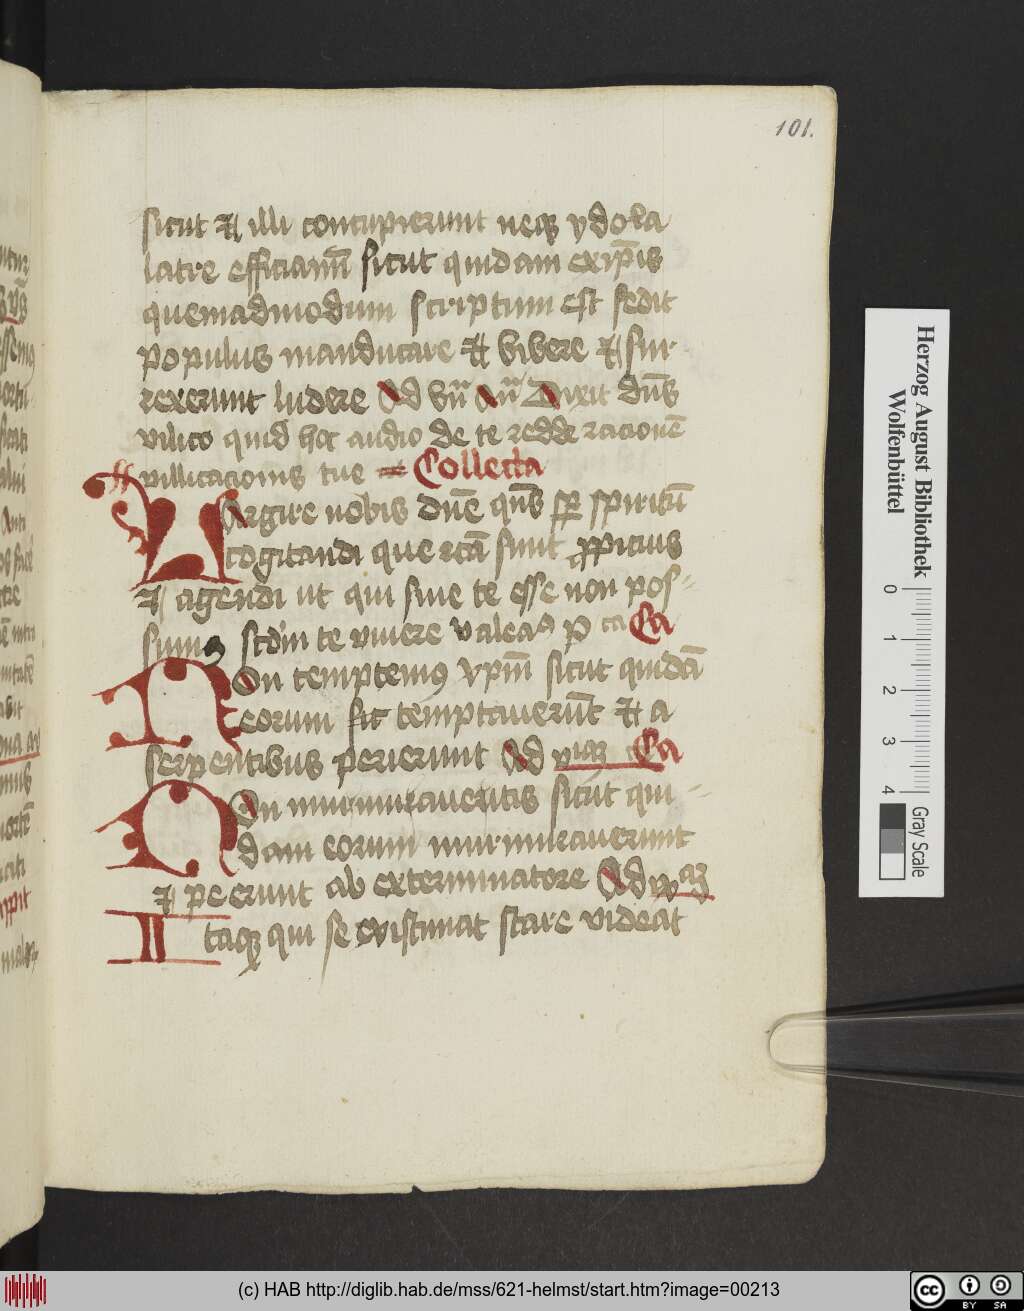 101.
sicut et illi concupierunt neq ydola
latre efficiam̄ sicut quidam exip̄is
quemadmodum scriptum est sedit
populus manducare et bibere et sur
rexerunt ludere Ad vn̄ An̄ Dixit dn̄s
vilico quid hoc audio de te redde racionē
villicacionis tue Collecta
Largire nobis dn̄e qn̄s sp̄ spiritū
cogitandi que rc̄a sunt ꝓpicius
et agendi ut qui sine te esse non pos
sumꝰ scd'm te vivere valeaꝰ p Ca
Non temptemꝰ xpm̄ sicut quidā
eorum sic temptaverūt et a
serpentibus perierunt Ad Ca
Non murmuraveritis sicut qui
dam eorum murmuraverunt
et perierunt ab exterminatore Ad
Itaq qui se existimat stare videat
Herzog August Bibliothek
Wolfenbüttel
0 1 2 3 4
Gray Scale
(c) HAB http://diglib.hab.de/mss/621-helmst/start.htm?image=00213
cc BY SA